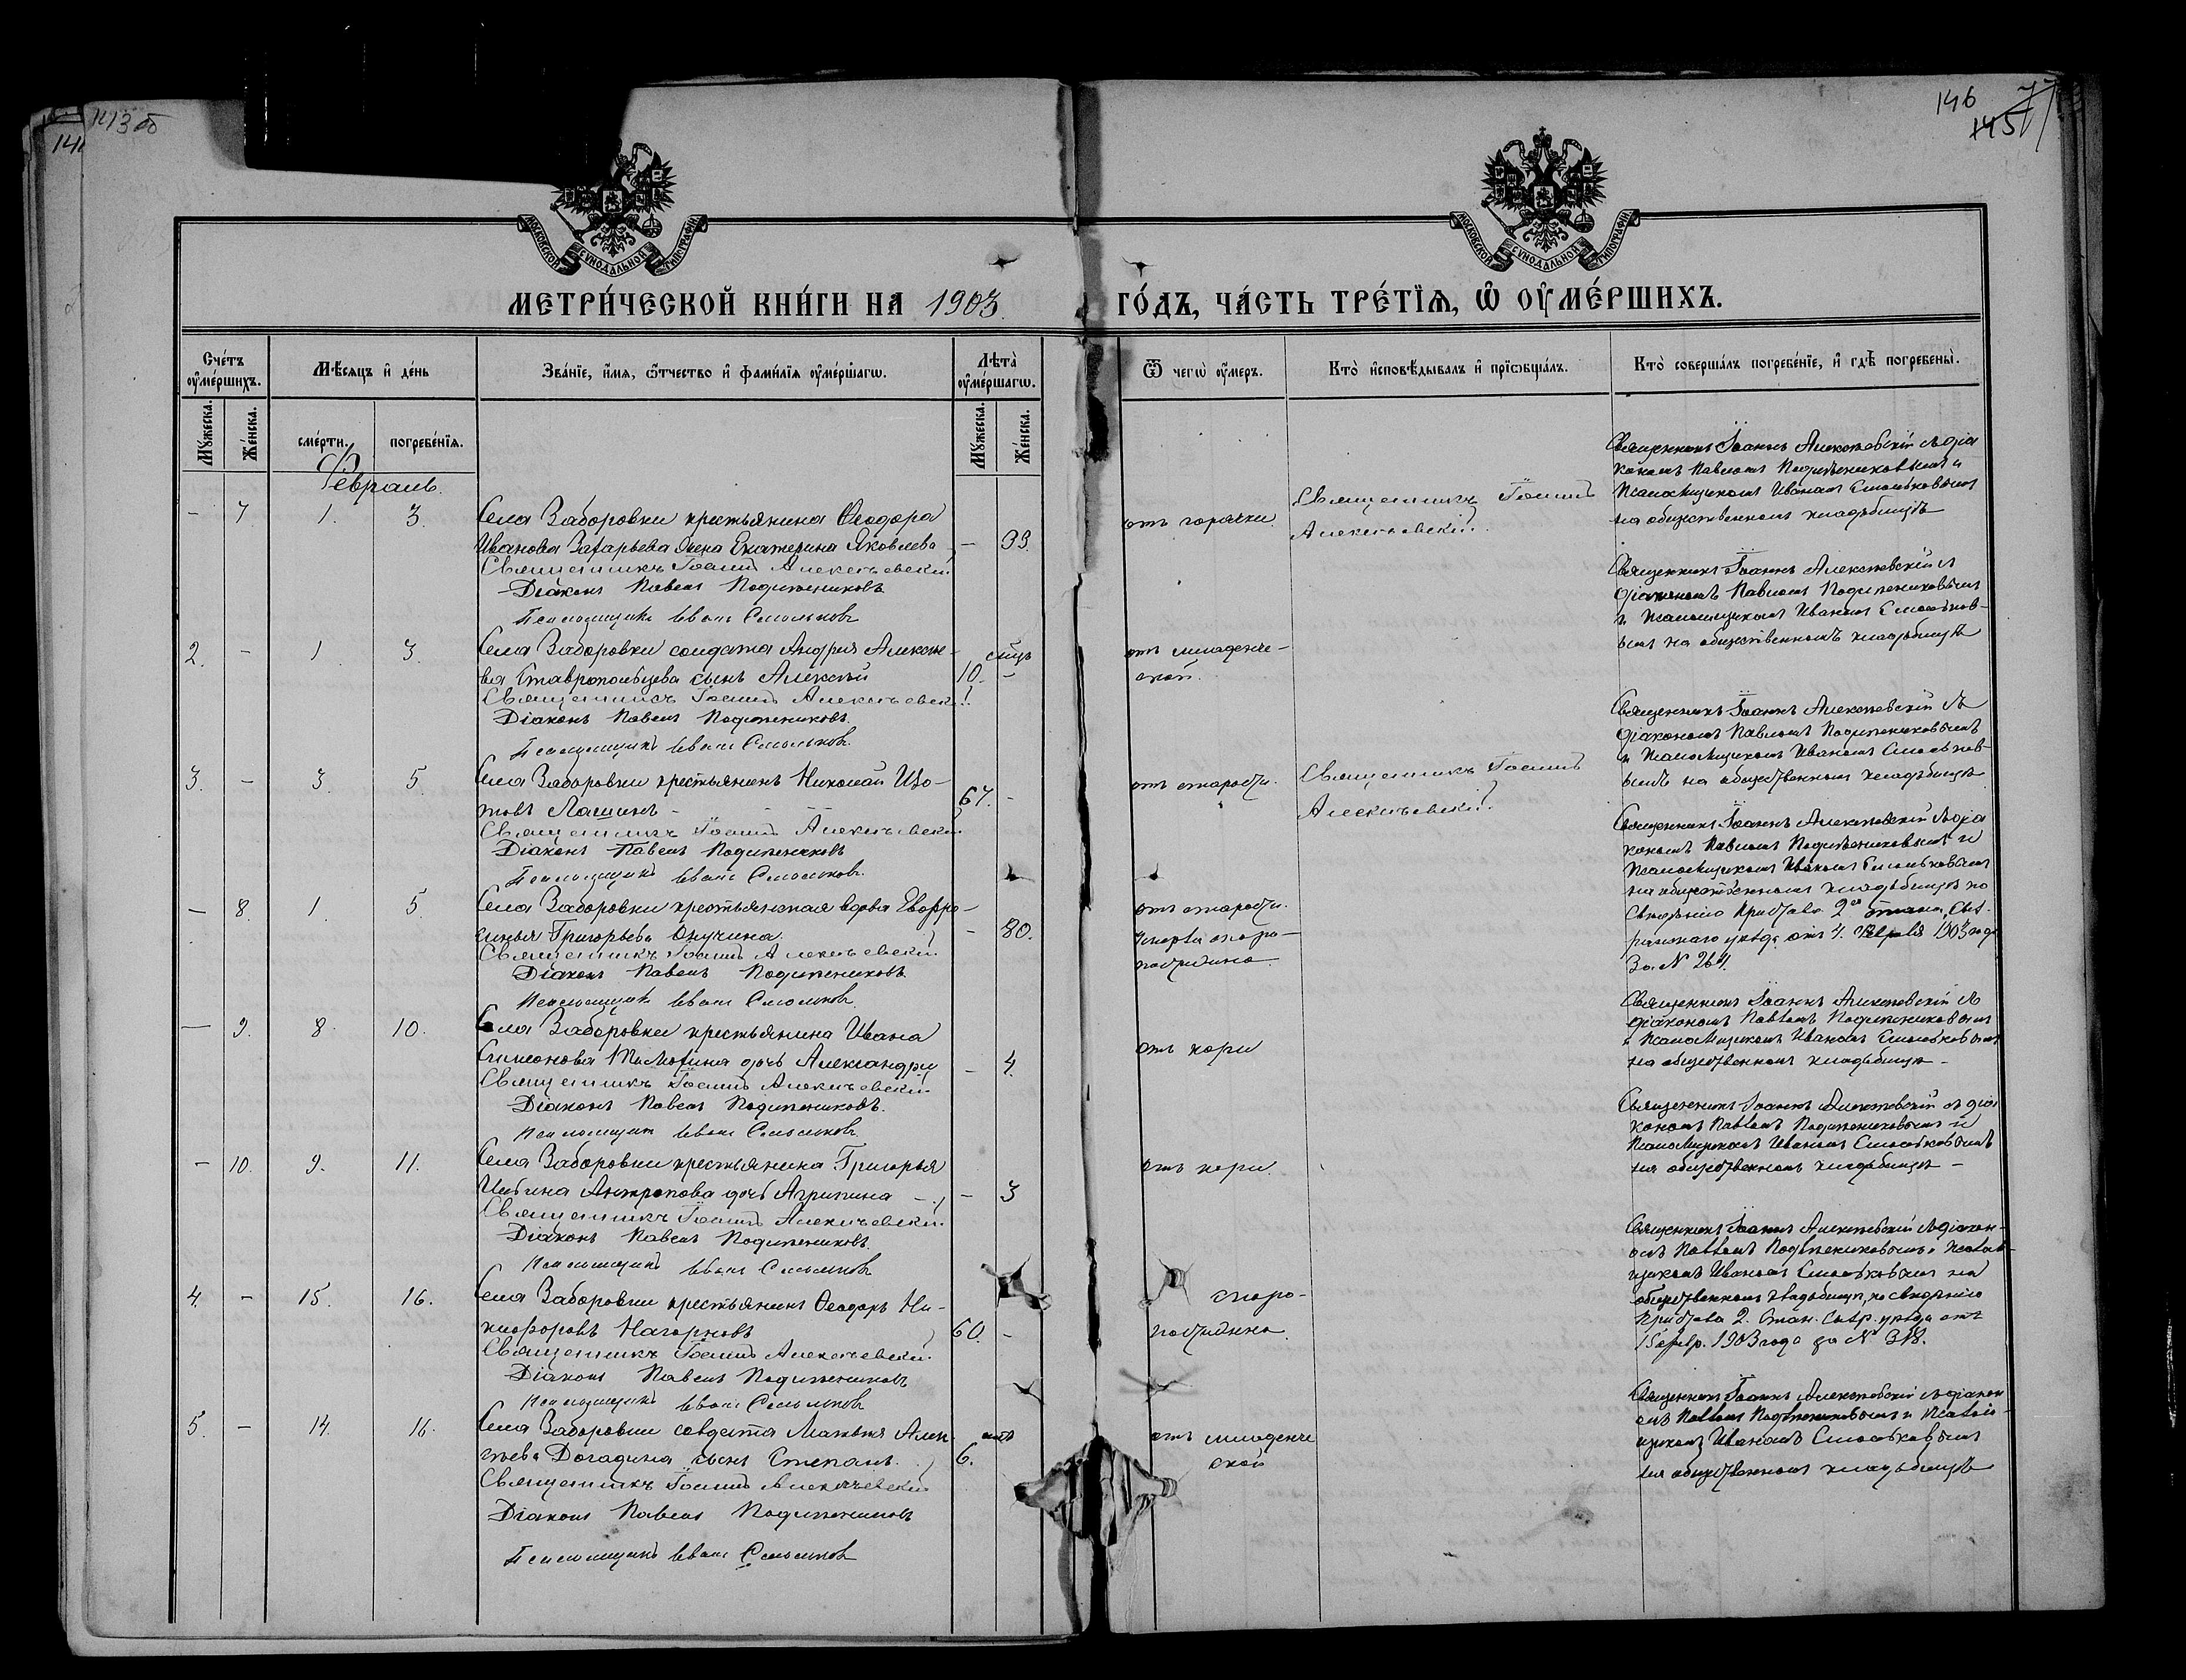 146
145
МОСКОВСКОЙ СУНОДАЛЬНОЙ ТИПОГРАФІИ
МОСКОВСКОЙ СУНОДАЛЬНОЙ ТИПОГРАФІИ
МЕТРИ́ЧЕСКОЙ КНИ́ГИ НА 1903 ГО́ДЪ, ЧА́СТЬ ТРЕ́ТЇѦ, Ѽ ОУ҆МЕ́РШИХЪ.
Сче́тъ оу҆ме́ршихъ.
Мѣ́сѧцъ и҆ де́нь
Зва́нїе, и҆́мѧ, ѻ҆́тчество и҆ фами́лїѧ оу҆ме́ршагѡ.
Лѣта̀ оу҆ме́ршагѡ.
Ѿ чегѡ̀ оу҆́меръ.
Кто̀ и҆сповѣ́дывалъ и҆ прїѡбща́лъ.
Кто̀ соверша́лъ погребе́нїе, и҆ гдѣ̀ погребены̀.
Мꙋ́жеска.
Же́нска.
сме́рти.
погребе́нїѧ.
Мꙋ́жеска.
Же́нска.
Февраль.
- 7 1. 3.
Села Заборовки крестьянина Ѳеодора
Иванова Захарьева жена Екатерина Яковлева - 33.
Священникъ Іоаннъ Алексѣевскій
Діаконъ Павелъ Подъяжениковъ
Псаломщикъ Иванъ Смольковъ
отъ горячки
Священникъ Іоаннъ
Алексѣевскій.
Священникъ Іоаннъ Алексѣевскій съ діа
кономъ Павломъ и
Псаломщикомъ Иваномъ Смольковымъ
на общественномъ кладбищѣ
2. - 1. 3.
Села Заборовки солдата Андрея Алексѣе-
ва Ставропольцева сынъ Алексѣй 10. -
Священникъ Іоаннъ Алексѣевскій
Діаконъ Павелъ
Псаломщикъ Иванъ Смольковъ
отъ младенче-
ской.
Священникъ Іоаннъ Алексѣевскій съ
діакономъ Павломъ
и Псаломщикомъ Иваномъ Смольков-
ымъ на общественномъ кладбищѣ
3. - 3. 5.
Села Заборовки крестьянинъ Николай Изо-
товъ Лашинъ - 67. -
Священникъ Іоаннъ Алексѣевскій
Діаконъ Павелъ
Псаломщикъ Иванъ Смольковъ
отъ старости.
Священникъ Іоаннъ
Алексѣевскій.
Священникъ Іоаннъ Алексѣевскій съ
діакономъ Павломъ
и Псаломщикомъ Иваномъ Смольков-
ымъ на общественномъ кладбищѣ
- 8. 1. 5.
Села Заборовки крестьянская вдова Евфро-
синья Григорьева Онучина - 80.
Священникъ Іоаннъ Алексѣевскій
Діаконъ Павелъ
Псаломщикъ Иванъ Смольковъ
отъ старости.
умерла скоро-
постижно.
Священникъ Іоаннъ Алексѣевскій съ діа
кономъ Павломъ и
Псаломщикомъ Иваномъ Смольковымъ
на общественномъ кладбищѣ по
свѣденію Пристава 2го стана Сыз-
ранскаго уѣзда отъ 4. Февраля 1903 года
За № 264.
- 9. 8. 10.
Села Заборовки крестьянина Ивана
Симеонова дочь Александра - 4.
Священникъ Іоаннъ Алексѣевскій
Діаконъ Павелъ
Псаломщикъ Иванъ Смольковъ
отъ кори
Священникъ Іоаннъ Алексѣевскій съ
діакономъ Павломъ
и Псаломщикомъ Иваномъ Смольковымъ
на общественномъ кладбищѣ -
- 10. 9. 11.
Села Заборовки крестьянина Григорья
Антропова дочь Агрипина - 3
Священникъ Іоаннъ Алексѣевскій
Діаконъ Павелъ
Псаломщикъ Иванъ Смольковъ
отъ кори.
Священникъ Іоаннъ Алексѣевскій съ діа
кономъ Павломъ и
Псаломщикомъ Иваномъ Смольковымъ
на общественномъ кладбищѣ -
4. - 15. 16.
Села Заборовки крестьянинъ Ѳеодоръ Ни-
кифоровъ Нагорновъ 60. -
Священникъ Іоаннъ Алексѣевскій
Діаконъ Павелъ
Псаломщикъ Иванъ Смольковъ
скоро-
постижно.
Священникъ Іоаннъ Алексѣевскій съ діакон-
омъ Павломъ и Псалом-
щикомъ Иваномъ Смольковымъ на
общественномъ кладбищѣ, по свѣденію
Пристава 2. Стан. Сызр. уѣзда отъ
15 февр. 1903 года за № 318.
5. - 14. 16.
Села Заборовки солдата Матвѣя Алек-
сѣева Догадина сынъ Степанъ. 6.
Священникъ Іоаннъ Алексѣевскій
Діаконъ Павелъ
Псаломщикъ Иванъ Смольковъ
отъ младенче
ской
Священникъ Іоаннъ Алексѣевскій съ діакон
омъ Павломъ и Псалом-
щикомъ Иваномъ Смольковымъ
на общественномъ кладбищѣ